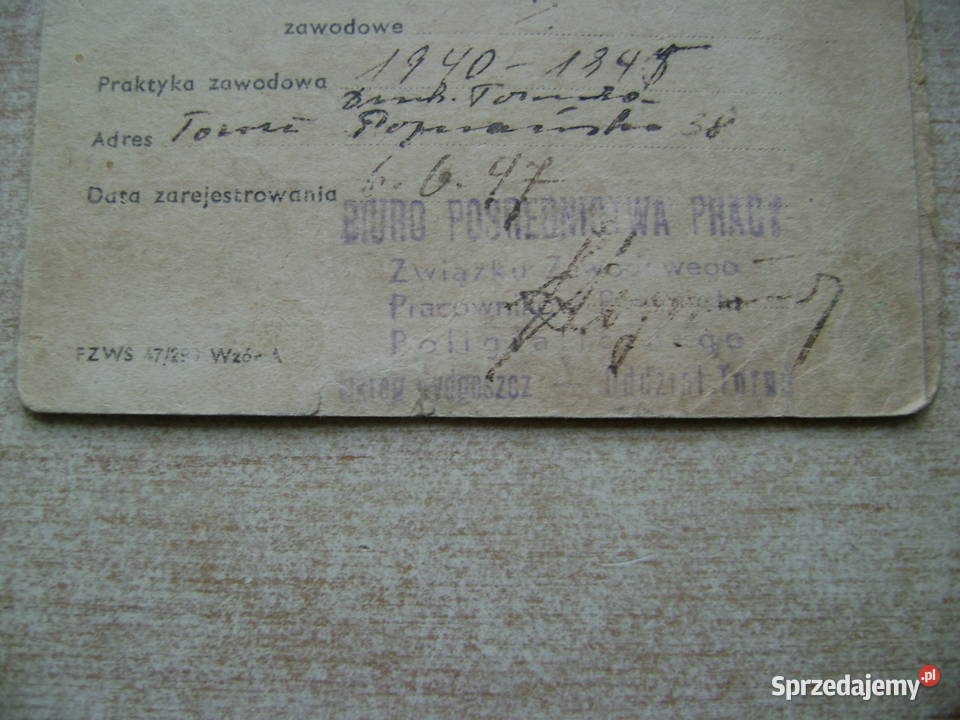 zawodowe
Praktyka zawodowa 1940 - 1945
Druk. Toruńska
Adres Toruń 38
Data zarejestrowania 6. 6. 47
BIURO POŚREDNICTWA PRACY
Związku Zawodowego
Pracowników
Poligraficznego
Okręg Bydgoszcz Oddział Toruń
FZWS 47/290 Wzór A
Sprzedajemy.pl